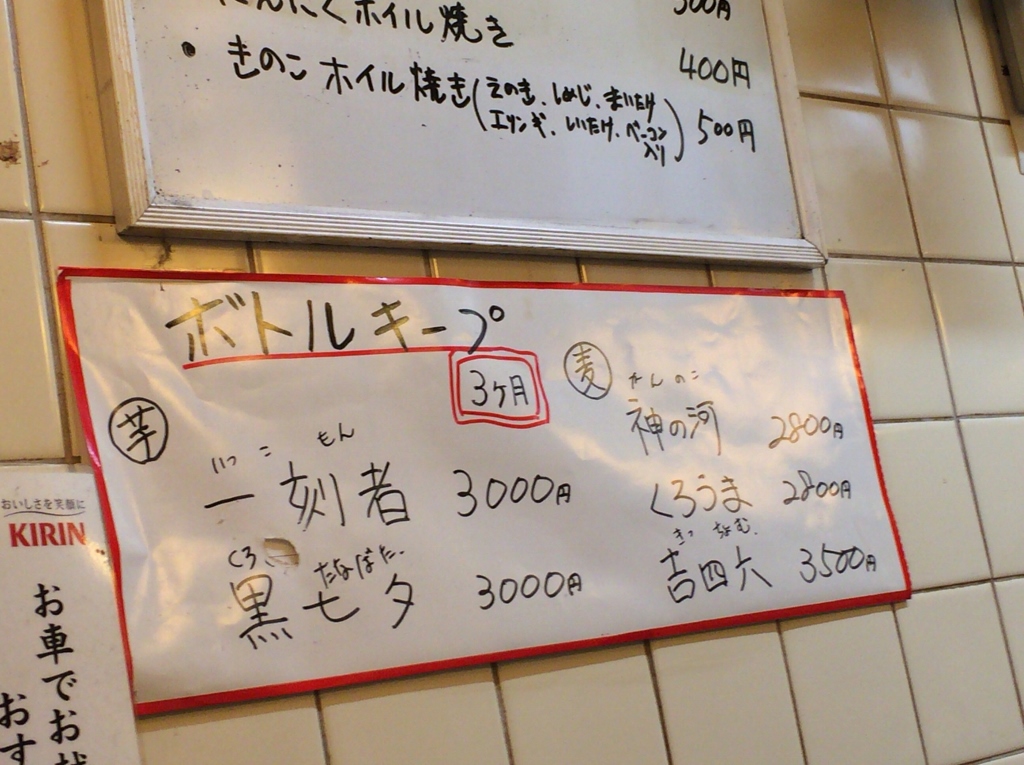 にんにくホイル焼き 300円
400円
・きのこ ホイル焼き(えのき、しめじ、まいたけ
エリンギ、しいたけ、ベーコン
入り) 500円
ボトルキープ
3ヶ月
芋
いっこ もん
一刻者 3000円
くろ たなばた
黒七夕 3000円
麦
かんのこ
神の河 2800円
くろうま 2800円
きっちょむ
吉四六 3500円
おいしさを笑顔に
KIRIN
お車でお
おす